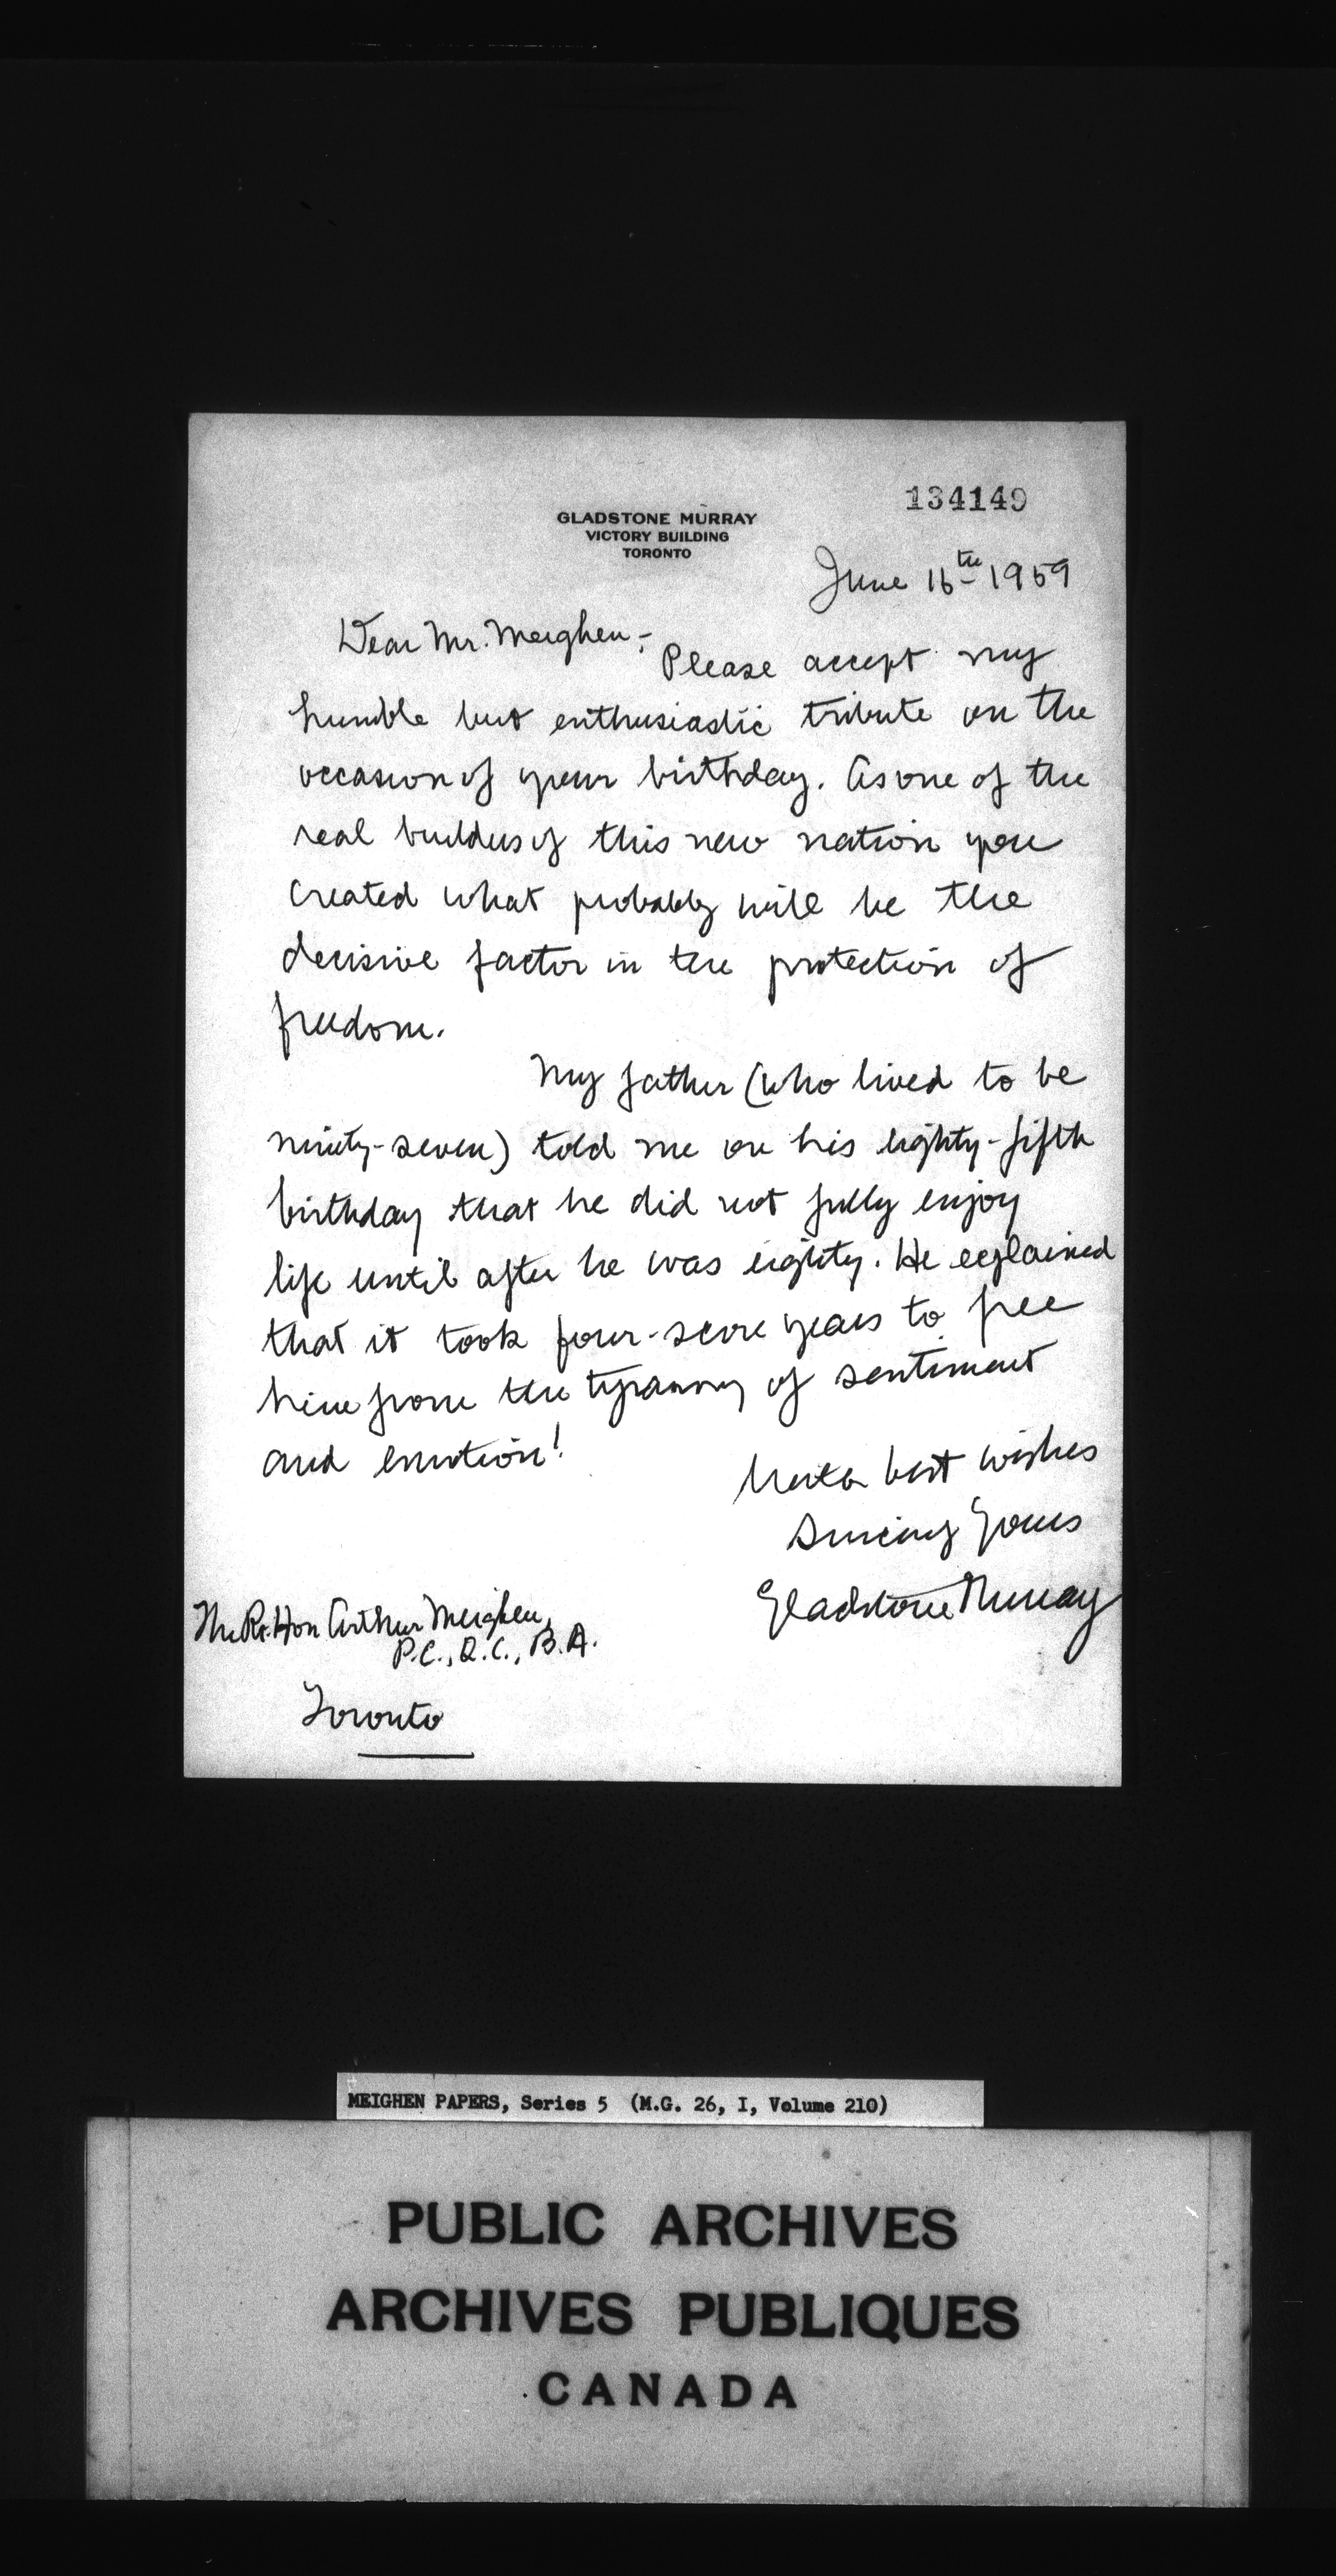 134149
GLADSTONE MURRAY
VICTORY BUILDING
TORONTO
June 16th 1959
Dear Mr. Meighen,-
Please accept my
humble but enthusiastic tribute on the
occasion of your birthday. As one of the
real builders of this new nation you
created what probably will be the
decisive factor in the protection of
freedom.
My father (who lived to be
ninety-seven) told me on his eighty-fifth
birthday that he did not fully enjoy
life until after he was eighty. He explained
that it took four-score years to free
him from the tyranny of sentiment
and emotion!
With best wishes
Sincerely Yours
Gladstone Murray
The Rt. Hon Arthur Meighen,
P.C., Q.C., B.A.
Toronto
MEIGHEN PAPERS, Series 5 (M.G. 26, I, Volume 210)
PUBLIC ARCHIVES
ARCHIVES PUBLIQUES
CANADA